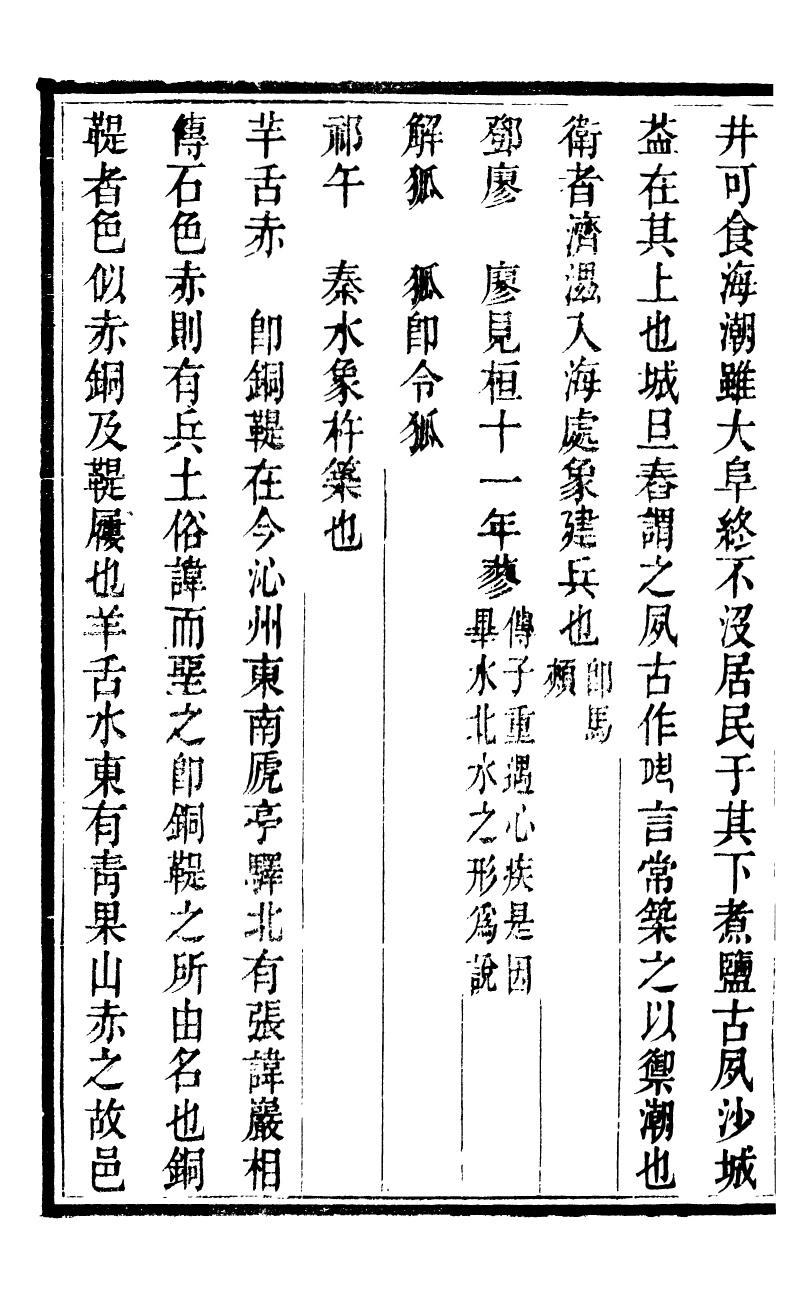 井可食海潮雖大阜終不沒居民于其下煮鹽古夙沙城
葢在其上也城旦舂謂之夙古作𠈇言常築之以禦潮也
衛者濟漯入海處象建兵也卽馬頰
鄧廖　廖見桓十一年蓼傳子重遇心疾是因畢水北水之形爲說
解狐　狐卽令狐
祁午　秦水象杵築也
羊舌赤　卽銅鞮在今沁州東南虒亭驛北有張諱巖相
傳石色赤則有兵土俗諱而堊之卽銅鞮之所由名也銅
鞮者色似赤銅及鞮屨也羊舌水東有靑果山赤之故邑